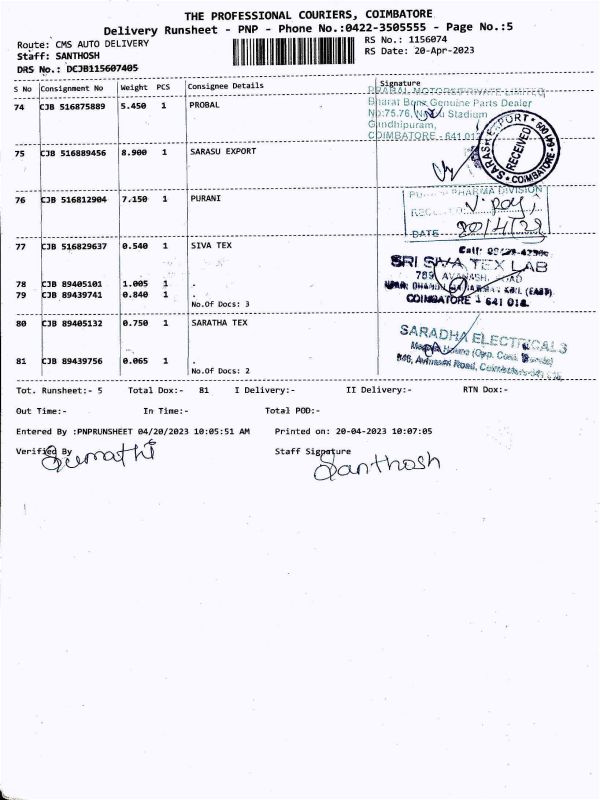 THE PROFESSIONAL COURIERS, COIMBATORE
Delivery Runsheet - PNP - Phone No.:0422-3505555 - Page No.:5
Route: CMS AUTO DELIVERY
RS No.: 1156074
Staff: SANTHOSH
RS Date: 20-Apr-2023
DRS No.: DCJB115607405
S No Consignment No Weight PCS Consignee Details Signature
74 CJB 516875889 5.450 1 PROBAL
Bharat Benz Genuine Parts Dealer
No:75,76, Nehru Stadium
Gandhipuram,
COIMBATORE - 641 012
SARASU EXPORT
RECEIVED
COIMBATORE - 641 009
75 CJB 516889456 8.900 1 SARASU EXPORT
76 CJB 516812904 7.150 1 PURANI
PHARMA DIVISION
DATE 20/4/23
77 CJB 516829637 0.540 1 SIVA TEX
SRI SIVA TEX LAB
789, AVANASHI ROAD
COIMBATORE - 641 018.
78 CJB 89405101 1.005 1 .
79 CJB 89439741 0.840 1 .
No.Of Docs: 3
80 CJB 89405132 0.750 1 SARATHA TEX
SARADHA ELECTRICALS
81 CJB 89439756 0.065 1 .
No.Of Docs: 2
Tot. Runsheet:- 5 Total Dox:- 81 I Delivery:- II Delivery:- RTN Dox:-
Out Time:- In Time:- Total POD:-
Entered By :PNPRUNSHEET 04/20/2023 10:05:51 AM Printed on: 20-04-2023 10:07:05
Verified By Staff Signature
Sumathi
Santhosh